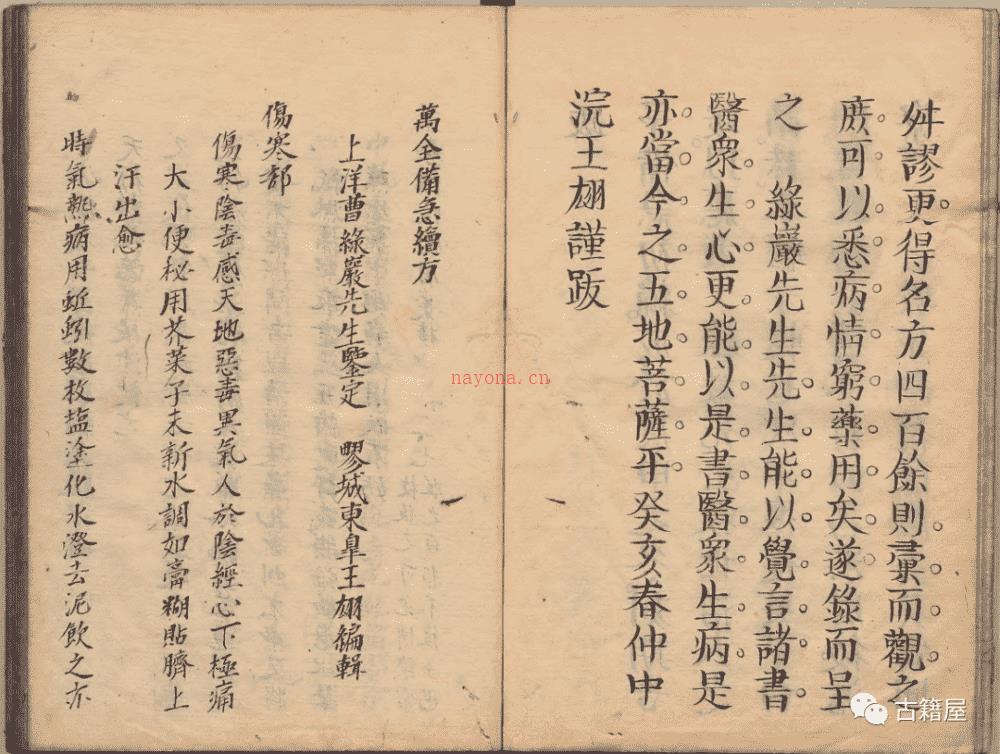 舛謬更得名方四百餘則彙而觀之
庻可以悉病情窮藥用矣遂錄而呈
之　綠巖先生先生能以覺言諸書
醫衆生心更能以是書醫衆生病是
亦當今之五地菩薩乎癸亥春仲中
浣王翃謹跋
萬全備急續方
上洋曹綠巖先生鑒定　嘐城東臯王翃編輯
傷寒部
傷寒陰毒感天地惡毒異氣人於陰經心下極痛
大小便秘用芥菜子末新水調如膏糊貼臍上
汗出愈
時氣熱病用蚯蚓數枚塩塗化水澄去泥飲之亦
nayona.cn
古籍屋